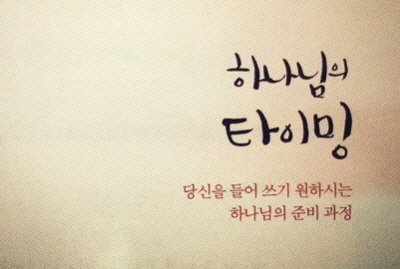 하나님의
타이밍
당신을 들어 쓰기 원하시는
하나님의 준비 과정